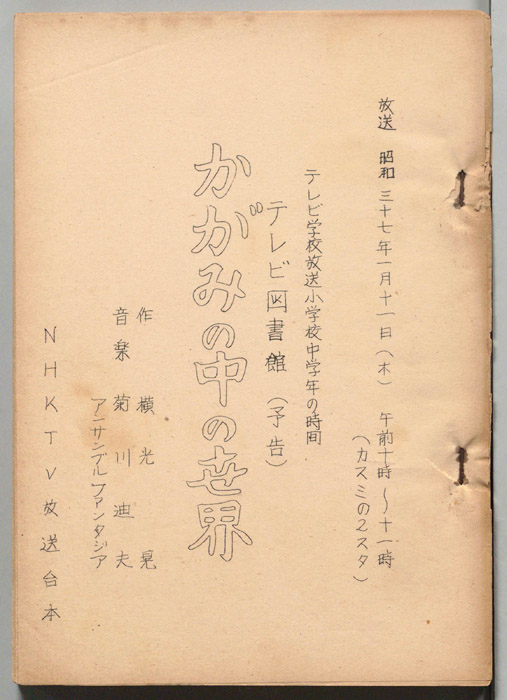 放送 昭和三十七年一月十一日(木) 午前十時~十一時
(カスミの2スタ)
テレビ学校放送小学校中学年の時間
テレビ図書館(予告)
かがみの中の世界
作 横光 晃
音楽 菊川迪夫
アンサンブルファンタジア
NHKTV放送台本